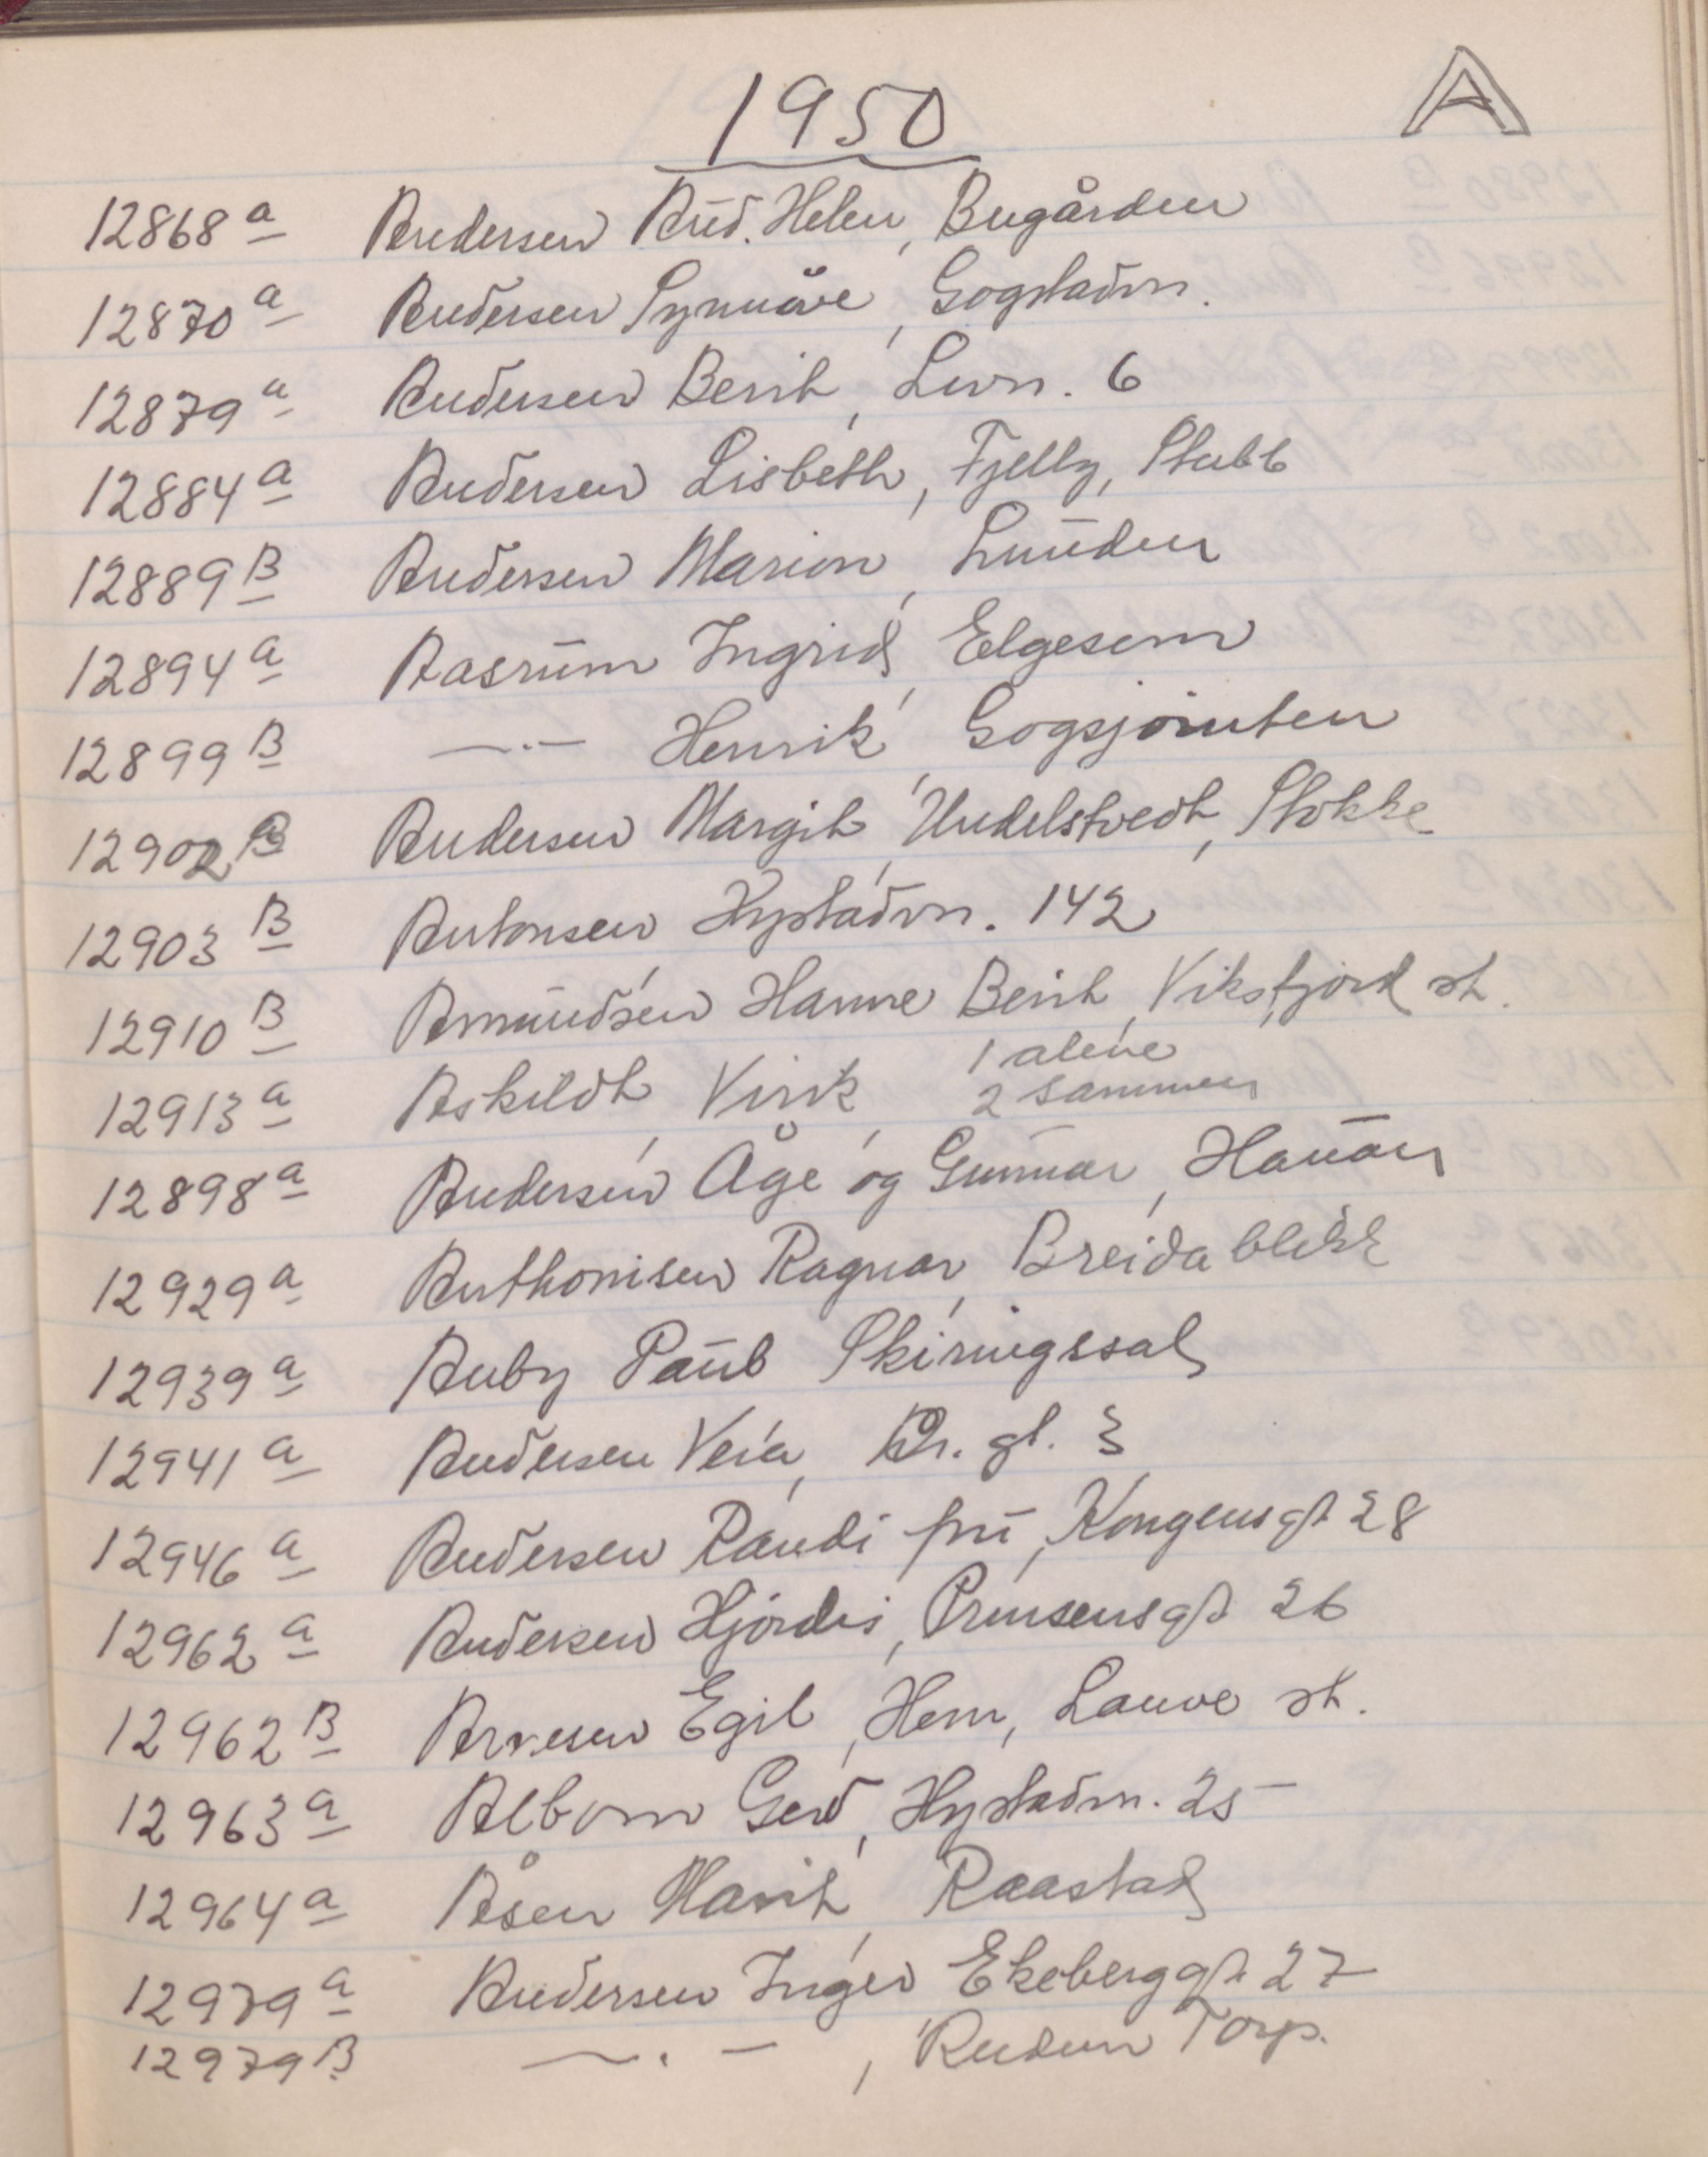 1950 A
12868 a Andersen Aud. Helen, Bugården
12870 a Andersen Synnøve, Gogstadvn.
12879 a Andersen Berit, Lvvn. 6
12884 a Andersen Lisbeth, Fjelly, Stubb
12889 B Andersen Marion, Lunden
12894 a Aasrum Ingrid, Elgesem
12899 B —.— Henrik, Gogsjøruten
12902 B Andersen Margit, Undelstvedt, Stokke
12903 B Antonsen, Hystadvn. 142
12910 B Amundsen Hanne Berit, Viksfjord st.
1 alene
12913 a Askildt, Virik, 2 sammen
12898 a Andersen Åge og Gunnar, Hauan
12929 a Anthonisen Ragnar, Breidablikk
12939 a Auby Paul Skiringssal
12941 a Andersen Vera, gt. 3
12946 a Andersen Randi fru, Kongensgt 28
12962 a Andersen Hjørdis, Prinsensgt 26
12962 B Arvesen Egil, Hem, Lauve st.
12963 a Albom Gerd, Hystadvn. 25
12964 a Åsen Marit, Raastad
12979 a Andersen Inger Ekeberggt. 27
12979 B —.—, Reidun Torp.